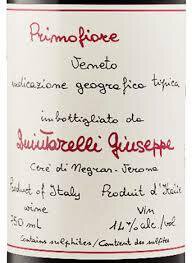 Primofiore
Veneto
indicazione geografica tipica
imbottigliato da
Quintarelli Giuseppe
Cerè di Negrar - Verona
Product of Italy Produit d'Italie
wine Vin
750 ml 14% alc./vol
Contains sulphites / Contient des sulfites